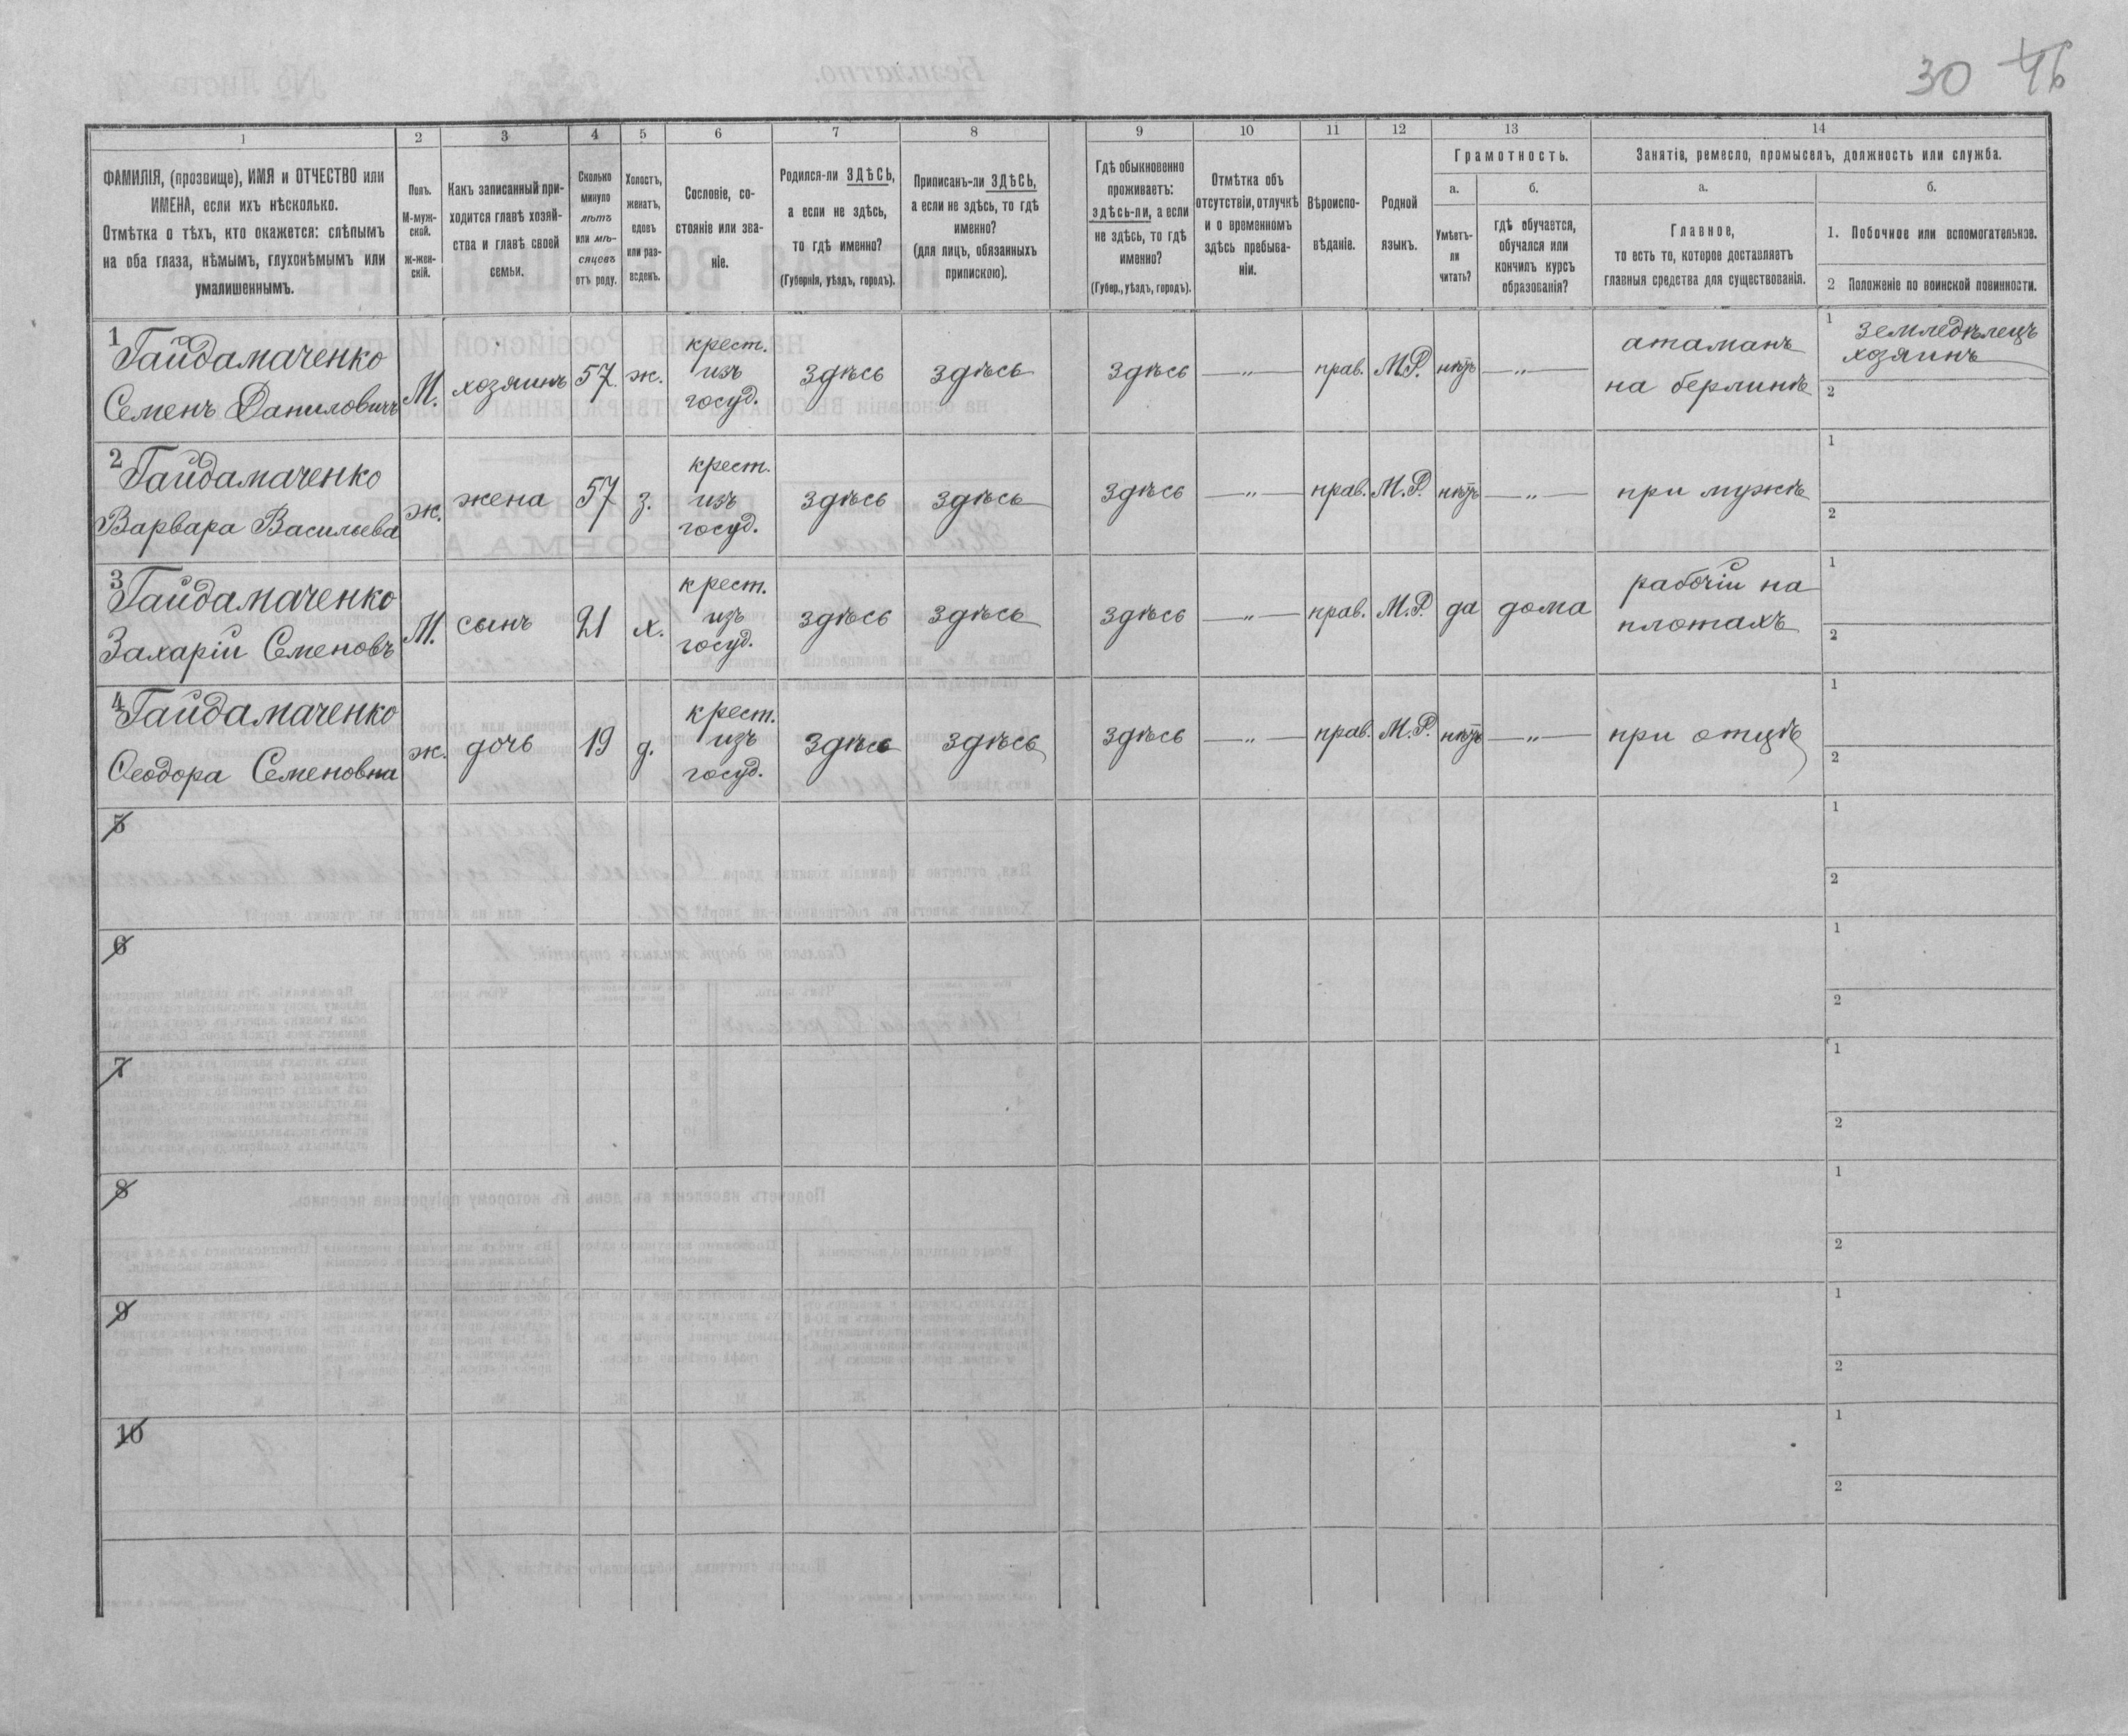 30 46
1
2
3
4
5
6
7
8
9
10
11
12
13
14
ФАМИЛІЯ, (прозвище), ИМЯ и ОТЧЕСТВО или
ИМЕНА, если ихъ нѣсколько.
Отмѣтка о тѣхъ, кто окажется: слѣпымъ
на оба глаза, нѣмымъ, глухонѣмымъ или
умалишеннымъ.
Полъ.
М-муж-
ской.
ж-жен-
скій.
Какъ записанный при-
ходится главѣ хозяй-
ства и главѣ своей
семьи.
Сколько
минуло
лѣтъ
или мѣ-
сяцевъ
отъ роду.
Холостъ,
женатъ,
вдовъ
или раз-
веденъ.
Сословіе, со-
стояніе или зва-
ніе.
Родился-ли ЗДѢСЬ,
а если не здѣсь,
то гдѣ именно?
(Губернія, уѣздъ, городъ).
Приписанъ-ли ЗДѢСЬ,
а если не здѣсь, то гдѣ
именно?
(для лицъ, обязанныхъ
припискою).
Гдѣ обыкновенно
проживаетъ:
здѣсь-ли, а если
не здѣсь, то гдѣ
именно?
(Губер., уѣздъ, городъ).
Отмѣтка объ
отсутствіи, отлучкѣ
и о временномъ
здѣсь пребыва-
ніи.
Вѣроиспо-
вѣданіе.
Родной
языкъ.
Грамотность.
а.
Умѣетъ-
ли
читать?
б.
гдѣ обучается,
обучался или
кончилъ курсъ
образованія?
Занятія, ремесло, промыселъ, должность или служба.
а.
Главное,
то есть то, которое доставляетъ
главныя средства для существованія.
б.
1. Побочное или вспомогательное.
2 Положеніе по воинской повинности.
1 Гайдамаченко
Семенъ Даниловичъ
М.
хозяинъ
57.
ж.
крест.
изъ
госуд.
здѣсь
здѣсь
здѣсь
— „ —
прав.
М.Р.
нѣтъ
— „ —
атаманъ
на берлинѣ
1 земледѣлецъ
хозяинъ
2
2 Гайдамаченко
Варвара Васильева
ж.
жена
57
з.
крест.
изъ
госуд.
здѣсь
здѣсь
здѣсь
— „ —
прав.
М.Р.
нѣтъ
— „ —
при мужѣ
1
2
3 Гайдамаченко
Захарій Семеновъ
М.
сынъ
21
х.
крест.
изъ
госуд.
здѣсь
здѣсь
здѣсь
— „ —
прав.
М.Р.
да
дома
рабочій на
плотахъ
1
2
4 Гайдамаченко
Ѳеодора Семеновна
ж.
дочь
19
д.
крест.
изъ
госуд.
здѣсь
здѣсь
здѣсь
— „ —
прав.
М.Р.
нѣтъ
— „ —
при отцѣ
1
2
5
1
2
6
1
2
7
1
2
8
1
2
9
1
2
10
1
2